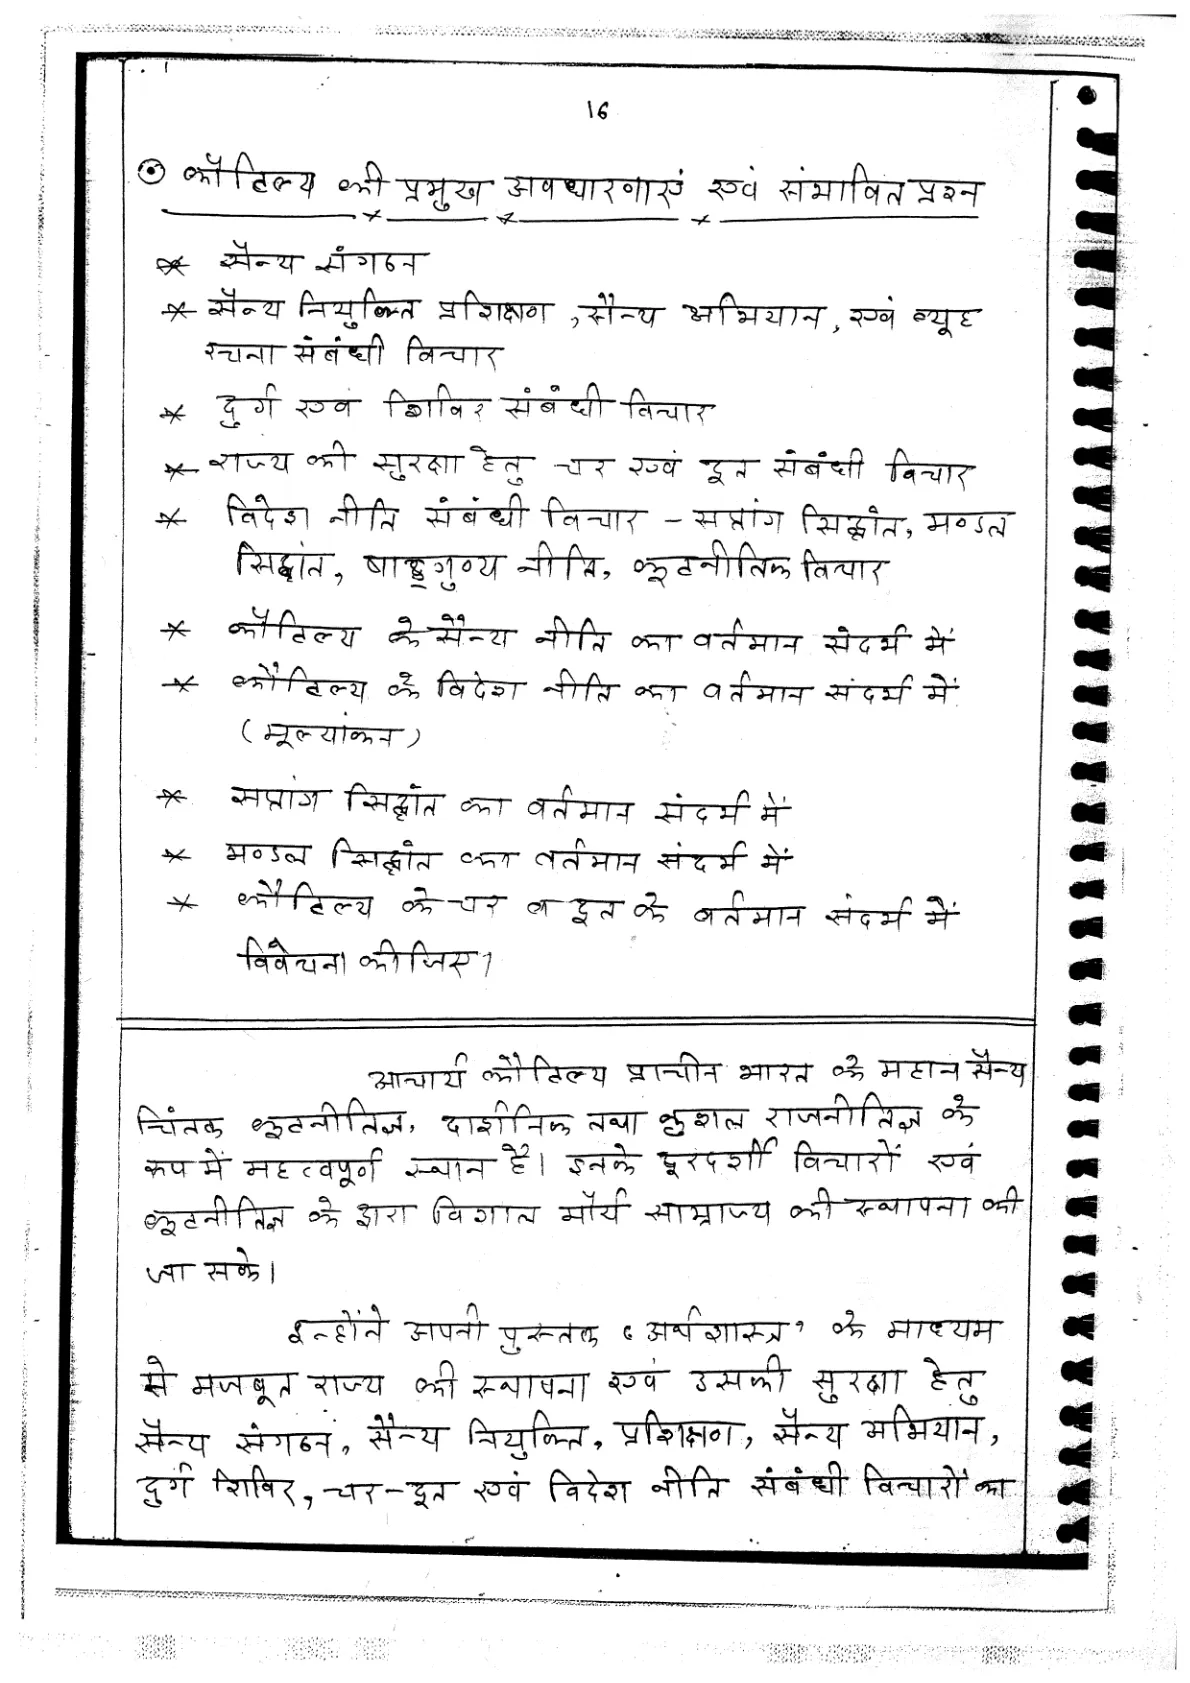 16
कौटिल्य की प्रमुख अवधारणाएं एवं संभावित प्रश्न
* सैन्य संगठन
* सैन्य नियुक्ति प्रशिक्षण, सैन्य अभियान, एवं व्यूह
रचना संबंधी विचार
* दुर्ग एवं शिविर संबंधी विचार
* राज्य की सुरक्षा हेतु चर एवं दूत संबंधी विचार
* विदेश नीति संबंधी विचार - सप्तांग सिद्धांत, मण्डल
सिद्धांत, षाड्गुण्य नीति, कूटनीतिक विचार
* कौटिल्य के सैन्य नीति का वर्तमान संदर्भ में
* कौटिल्य के विदेश नीति का वर्तमान संदर्भ में
(मूल्यांकन)
* सप्तांग सिद्धांत का वर्तमान संदर्भ में
* मण्डल सिद्धांत का वर्तमान संदर्भ में
* कौटिल्य के चर व दूत के वर्तमान संदर्भ में
विवेचना कीजिए?
आचार्य कौटिल्य प्राचीन भारत के महान सैन्य
चिंतक कूटनीतिज्ञ, दार्शनिक तथा कुशल राजनीतिज्ञ के
रूप में महत्वपूर्ण स्थान है। इनके दूरदर्शी विचारों एवं
कूटनीतिज्ञ के द्वारा विशाल मौर्य साम्राज्य की स्थापना की
जा सके।
इन्होंने अपनी पुस्तक 'अर्थशास्त्र' के माध्यम
से मजबूत राज्य की स्थापना एवं उसकी सुरक्षा हेतु
सैन्य संगठन, सैन्य नियुक्ति, प्रशिक्षण, सैन्य अभियान,
दुर्ग शिविर, चर-दूत एवं विदेश नीति संबंधी विचारों का